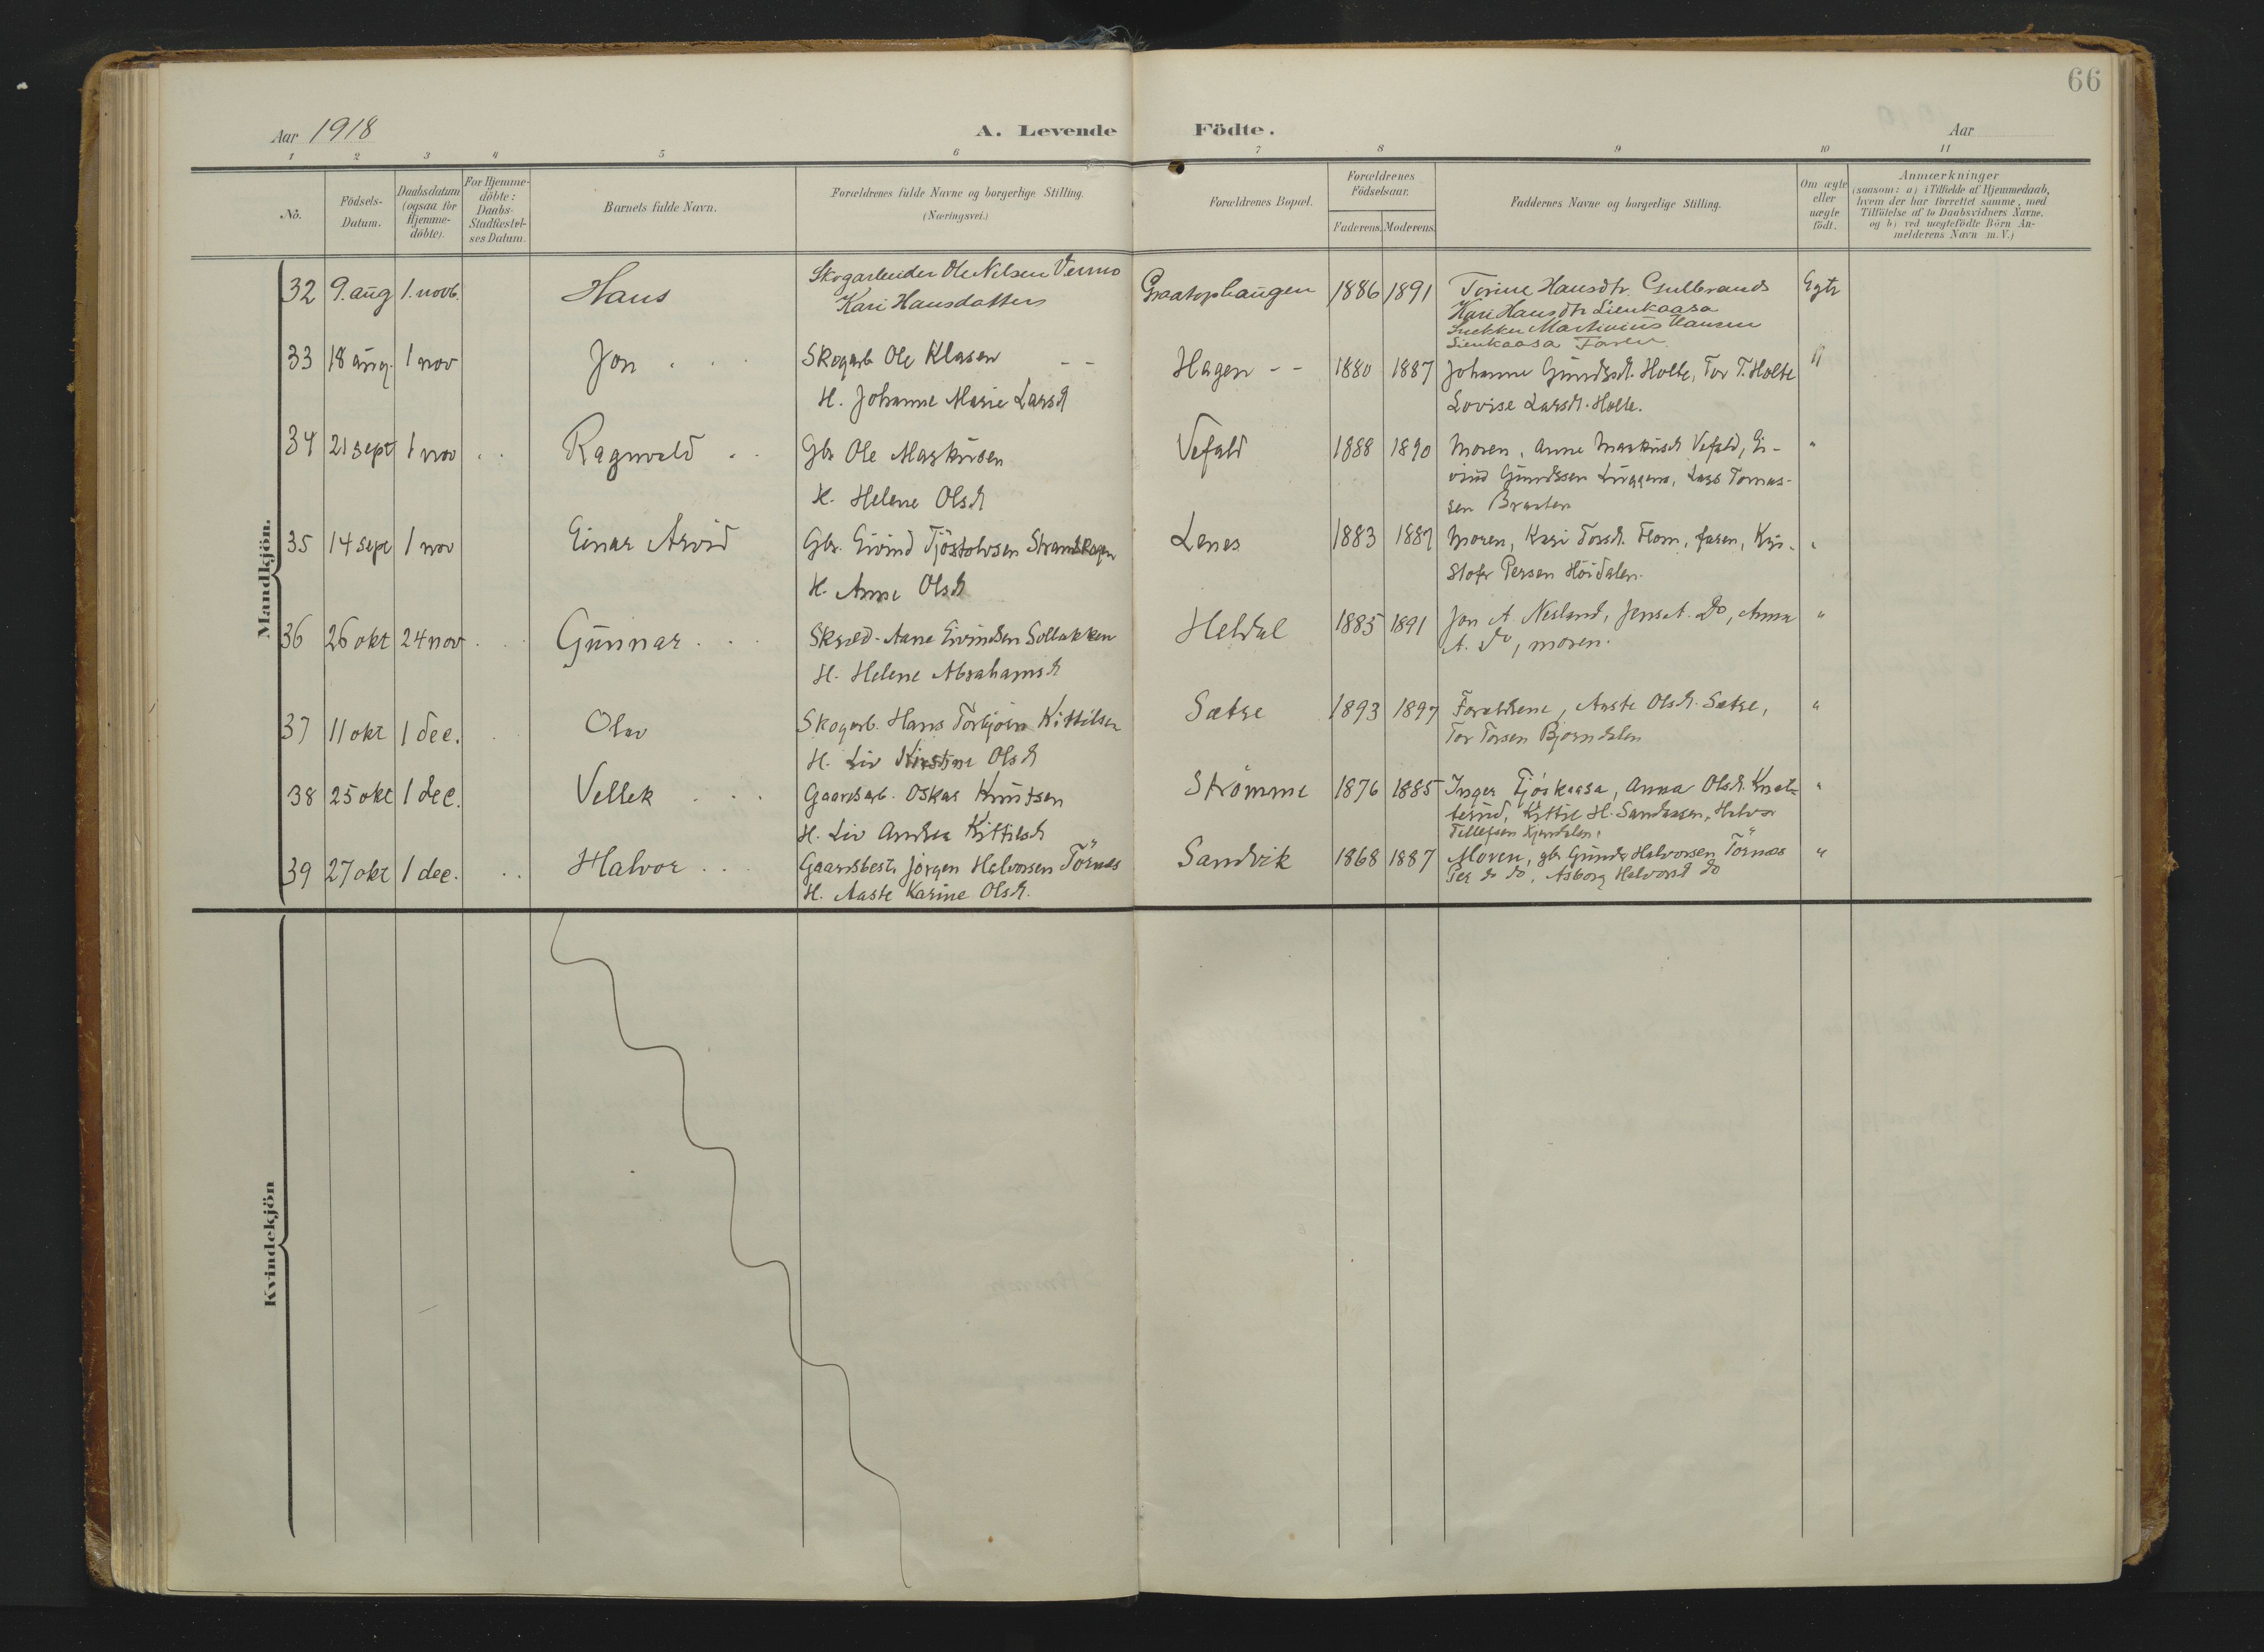 66
Aar 1918
A. Levende Födte.
Aar
1 2 3 4 5 6 7 8 9 10 11
No.
Födsels-
Datum.
Daabsdatum
(ogsaa for
Hjemme-
döbte).
For Hjemme-
döbte:
Daabs-
Stadfæstel-
ses Datum.
Barnets fulde Navn.
Forældrenes fulde Navne og borgerlige Stilling.
(Næringsvei.)
Forældrenes Bopæl.
Forældrenes
Födselsaar.
Faderens. Moderens.
Faddernes Navne og borgerlige Stilling.
Om ægte
eller
uægte
födt.
Anmærkninger
(saasom: a) i Tilfælde af Hjemmedaab,
hvem der har forrettet samme, med
Tilföielse af to Daabsvidners Navne.
og b) ved uægtefödte Börn An-
melderens Navn m. V.)
Mandkjön.
32 9. aug 1. novb. Hans Skogarbeider Ole Nilsen Vermo Graatophaugen 1886 1891 Torine Hansdtr. Gulbrands Egte
Kari Hansdatter Kari Hansdtr Lienkaasa
Snekker Martinius Hansen
Lienkaasa Faren
33 18 aug. 1 nov Jon Skogarb Ole Klasen Hagen 1880 1887 Johanne Gundersd. Holte, Tor T. Holte "
H. Johanne Marie Larsd Lovise Larsd. Holte.
34 21 sept 1 nov Ragnvald Gbr Ole Markusen Vefald 1888 1890 Moren, Anne Markusd Vefald, Ei- "
H. Helene Olsd vind Gundersen, Lars Tomas-
sen Braaten
35 14 sept 1 nov Einar Arvid Gbr. Eivind Tjöstolvsen Strandskogen Lenes 1883 1887 Moren, Kari Torsd. Flom, faren, Kri- "
H. Anne Olsd stofer Persen Höidalen.
36 26 okt 24 nov Gunnar Aane Eivindsen Sollakken Heldal 1885 1891 Jon A. Nesland, Jens A. Do, Anna "
H. Helene Abrahamsd A. do, moren.
37 11 okt 1 dec. Olav Skogarb. Hans Torbjörn Kittilsen Sætre 1893 1897 Foreldrene, Aaste Olsd. Sætre, "
H. Liv Kirstine Olsd Tor Torsen Bjorndalen
38 25 okt 1 dec. Vellek Gaardsarb. Oskar Knutsen Strömme 1876 1885 Inger Tjöskaasa, Anna Olsd. Knat- "
H. Liv Andrea Kittilsd terud, Kittil H. Sandaasen, Halvor
Tellefsen
39 27 okt 1 dec. Halvor Gaardsbest. Jörgen Halvorsen Törnes Sandvik 1868 1887 Moren, gbr Gunder Halvorsen Törnæs "
H. Aaste Karine Olsd. Per do do, Asborg Halvorsd do
Kvindekjön